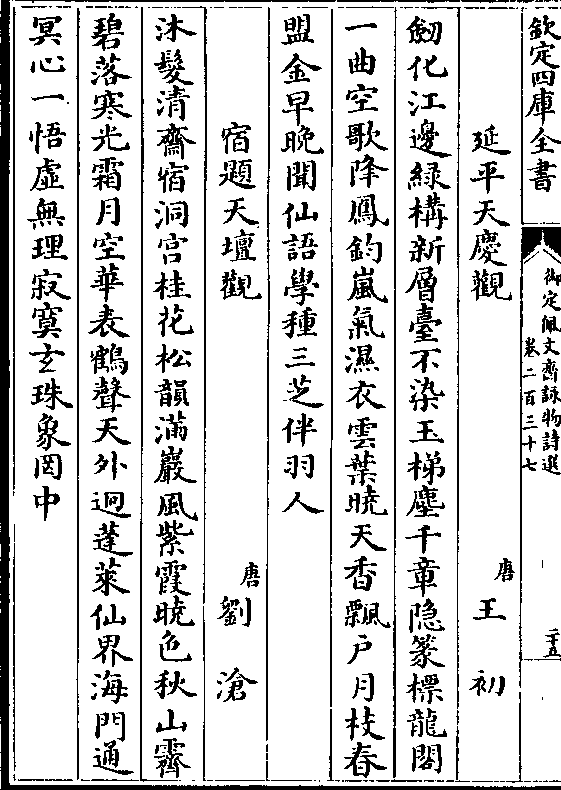 欽定四庫全書
御定佩文齋詠物詩選
卷二百三十七
二十五
延平天慶觀
唐 王初
劒化江邊綠構新層臺不染玉梯塵千章隱篆標龍閣
一曲空歌降鳳鈞嵐氣濕衣雲葉曉天香飄戶月枝春
盟金早晚聞仙語學種三芝伴羽人
宿題天壇觀
唐 劉滄
沐髮清齋宿洞宫桂花松韻滿巖風紫霞曉色秋山霽
碧落寒光霜月空華表鶴聲天外迥蓬萊仙界海門通
冥心一悟虛無理寂寞玄珠象罔中